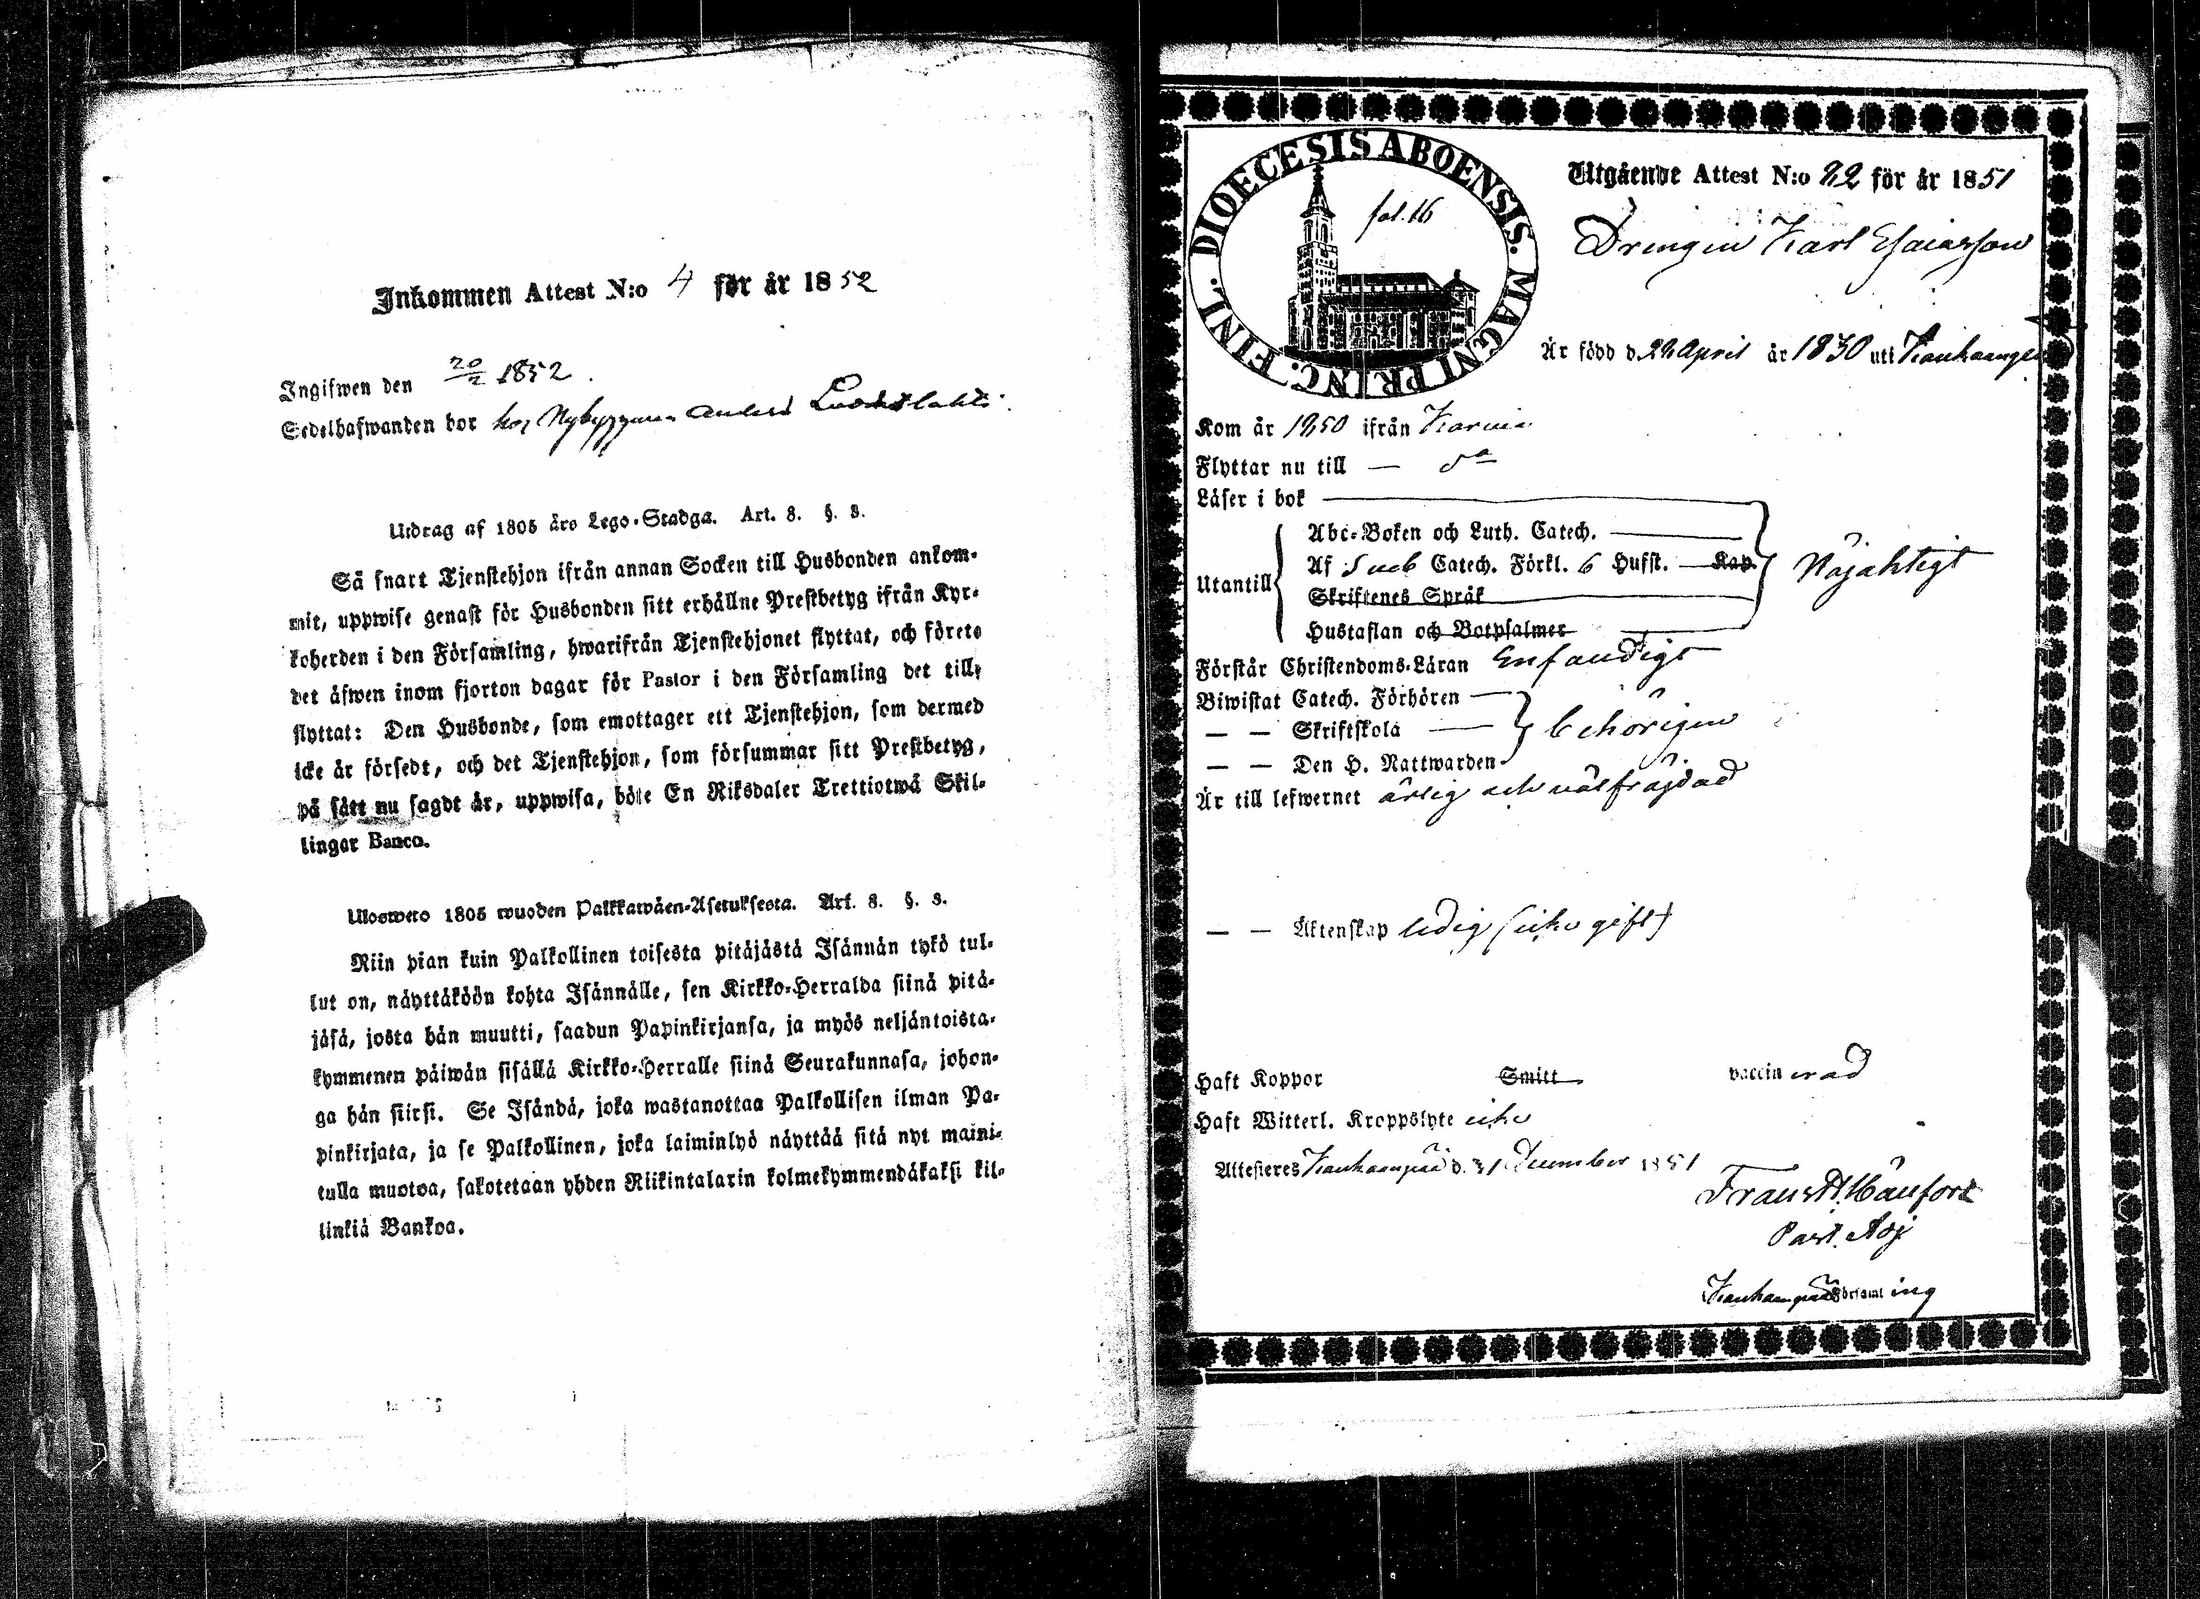 Inkommen Attest N:o 4 för år 1852
Ingifwen den 20/2 1852.
Sedelhafwanden bor hos Nybyggaren Anders
Utdrag af 1805 års Lego-Stadga. Art. 8. §. 3.
Så snart Tjenstehjon ifrån annan Socken till Husbonden ankom-
mit, uppwise genast för Husbonden sitt erhållne Prestbetyg ifrån Kyr-
koherden i den Församling, hwarifrån Tjenstehjonet flyttat, och förete
det äfwen inom fjorton dagar för Pastor i den Församling det till-
flyttat: Den Husbonde, som emottager ett Tjenstehjon, som dermed
icke är försedt, och det Tjenstehjon, som försummar sitt Prestbetyg,
på sätt nu sagdt är, uppwisa, böte En Riksdaler Trettiotwå Skil-
lingar Banco.
Ulosweto 1805 wuoden Palkkawäen-Asetuksesta. Art. 8. §. 3.
Niin pian kuin Palkollinen toisesta pitäjästä Isännän tykö tul-
lut on, näyttäköön kohta Isännälle, sen Kirkko-Herralda siinä pitä-
jäsä, josta hän muutti, saadun Papinkirjansa, ja myös neljäntoista-
kymmenen päiwän sisällä Kirkko-Herralle siinä Seurakunnasa, johon-
ga hän siirsi. Se Isändä, joka wastanottaa Palkollisen ilman Pa-
pinkirjata, ja se Palkollinen, joka laiminlyö näyttää sitä nyt maini-
tulla muotoa, sakotetaan yhden Riikintalarin kolmekymmendäkaksi kil-
linkiä Bankoa.
DIOECESIS ABOENSIS. MAGNI PRINC. FINL.
fol. 16
Utgående Attest N:o 22 för år 1851
Drengen Karl Esaiasson
Är född d. 22 April år 1830 uti
Kom år 1850 ifrån Karvia
Flyttar nu till — do
Läser i bok
Abc-Boken och Luth. Catech.
Af Sveb Catech. Förkl. 6 Hufst. Kap.
Utantill
Nöjaktigt
Skriftenes Språk
Hustaflan och Botpsalmer
Förstår Christendoms-Läran Enfaldigt
Biwistat Catech. Förhören
— — Skriftskola
behörigen
— — Den H. Nattwarden
Är till lefwernet ärlig och välfräjdad
— — Äktenskap ledig (icke gift)
Haft Koppor Smitt vaccinerad
Haft Witterl. Kroppslyte icke
Attesteres Kankaanpää d. 31 December 1851
Past. Adj
Kankaanpää Församling